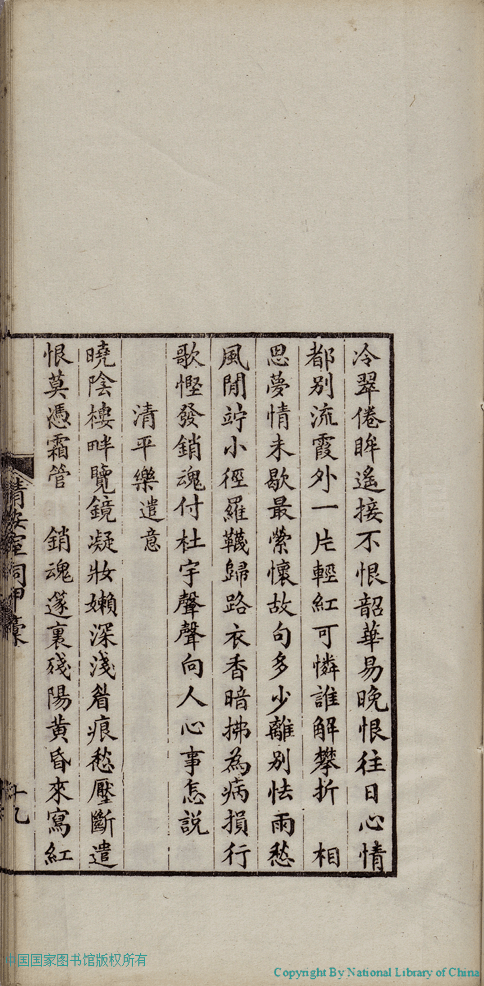 冷翠倦眸遙接不恨韶華易晚恨往日心情
都別流霞外一片輕紅可憐誰解攀折　相
思夢情未歇最縈懷故句多少離別怯雨愁
風閒竚小徑羅韈歸路衣香暗拂為病損行
歌慳發銷魂付杜宇聲聲向人心事怎說
清平樂遣意
曉陰樓畔覽鏡凝妝嬾深淺眉痕愁壓斷遣
恨莫憑霜管　銷魂邃裏殘陽黃昏來寫紅
詞甲稾
十七
中国国家图书馆版权所有
Copyright By National Library of China